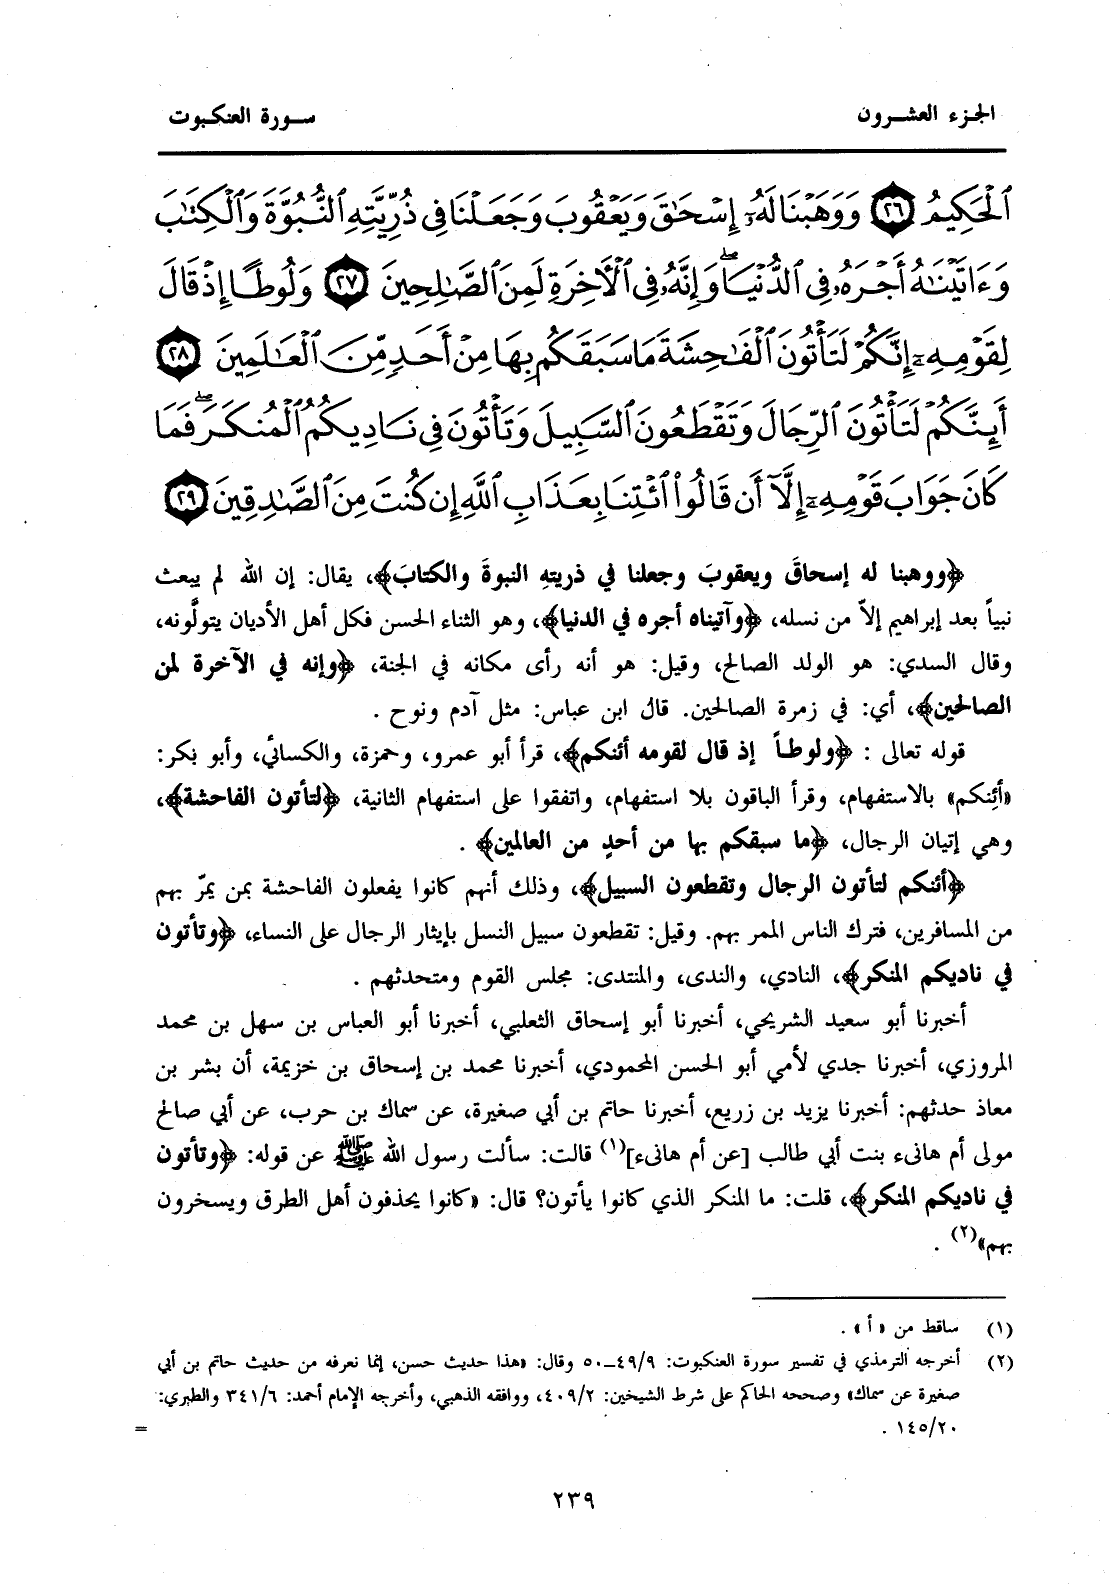 الجزء العشرون
سورة العنكبوت
ٱلْحَكِيمُ ٢٦ وَوَهَبْنَا لَهُۥٓ إِسْحَٰقَ وَيَعْقُوبَ وَجَعَلْنَا فِى ذُرِّيَّتِهِ ٱلنُّبُوَّةَ وَٱلْكِتَٰبَ
وَءَاتَيْنَٰهُ أَجْرَهُۥ فِى ٱلدُّنْيَا ۖ وَإِنَّهُۥ فِى ٱلْآخِرَةِ لَمِنَ ٱلصَّٰلِحِينَ ٢٧ وَلُوطًا إِذْ قَالَ
لِقَوْمِهِۦٓ إِنَّكُمْ لَتَأْتُونَ ٱلْفَٰحِشَةَ مَا سَبَقَكُم بِهَا مِنْ أَحَدٍ مِّنَ ٱلْعَٰلَمِينَ ٢٨
أَئِنَّكُمْ لَتَأْتُونَ ٱلرِّجَالَ وَتَقْطَعُونَ ٱلسَّبِيلَ وَتَأْتُونَ فِى نَادِيكُمُ ٱلْمُنكَرَ ۖ فَمَا
كَانَ جَوَابَ قَوْمِهِۦٓ إِلَّآ أَن قَالُوا۟ ٱئْتِنَا بِعَذَابِ ٱللَّهِ إِن كُنتَ مِنَ ٱلصَّٰدِقِينَ ٢٩
﴿ووهبنا له إسحاقَ ويعقوبَ وجعلنا في ذريتهِ النبوةَ والكتابَ﴾، يقال: إن الله لم يبعث
نبياً بعد إبراهيم إلاّ من نسله، ﴿وآتيناه أجره في الدنيا﴾، وهو الثناء الحسن فكل أهل الأديان يتولَّونه،
وقال السدي: هو الولد الصالح، وقيل: هو أنه رأى مكانه في الجنة، ﴿وإنه في الآخرة لمن
الصالحين﴾، أي: في زمرة الصالحين. قال ابن عباس: مثل آدم ونوح .
قوله تعالى : ﴿ولوطاً إذ قال لقومه أئنكم﴾، قرأ أبو عمرو، وحمزة، والكسائي، وأبو بكر:
«أئِنكم» بالاستفهام، وقرأ الباقون بلا استفهام، واتفقوا على استفهام الثانية، ﴿لتأتون الفاحشة﴾،
وهي إتيان الرجال، ﴿ما سبقكم بها من أحدٍ من العالمين﴾ .
﴿أئنكم لتأتون الرجال وتقطعون السبيل﴾، وذلك أنهم كانوا يفعلون الفاحشة بمن يمرّ بهم
من المسافرين، فترك الناس الممر بهم. وقيل: تقطعون سبيل النسل بإيثار الرجال على النساء، ﴿وتأتون
في ناديكم المنكر﴾، النادي، والندى، والمنتدى: مجلس القوم ومتحدثهم .
أخبرنا أبو سعيد الشريحي، أخبرنا أبو إسحاق الثعلبي، أخبرنا أبو العباس بن سهل بن محمد
المروزي، أخبرنا جدي لأمي أبو الحسن المحمودي، أخبرنا محمد بن إسحاق بن خزيمة، أن بشر بن
معاذ حدثهم: أخبرنا يزيد بن زريع، أخبرنا حاتم بن أبي صغيرة، عن سماك بن حرب، عن أبي صالح
مولى أم هانىء بنت أبي طالب [عن أم هانىء](١) قالت: سألت رسول الله ﷺ عن قوله: ﴿وتأتون
في ناديكم المنكر﴾، قلت: ما المنكر الذي كانوا يأتون؟ قال: «كانوا يحذفون أهل الطرق ويسخرون
بهم»(٢) .
(١) ساقط من «أ» .
(٢) أخرجه الترمذي في تفسير سورة العنكبوت: ٤٩/٩ـ٥٠ وقال: «هذا حديث حسن، إنما نعرفه من حديث حاتم بن أبي
صغيرة عن سماك» وصححه الحاكم على شرط الشيخين: ٤٠٩/٢، ووافقه الذهبي، وأخرجه الإمام أحمد: ٣٤١/٦ والطبري:
١٤٥/٢٠ . =
٢٣٩